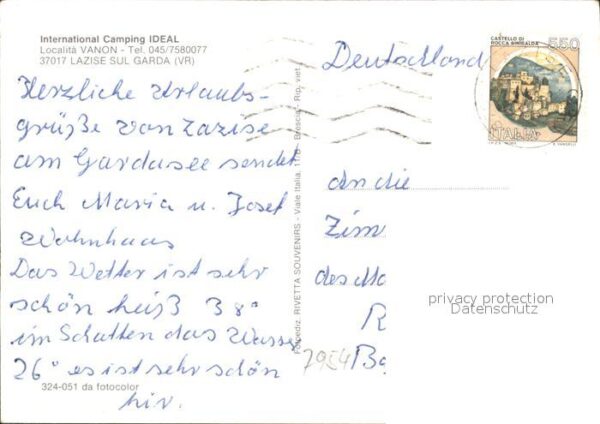 International Camping IDEAL
Località VANON - Tel. 045/7580077
37017 LAZISE SUL GARDA (VR)
Herzliche Urlaubs-
grüße von Lazise
am Gardasee sendet
Euch Maria u. Josef
Wohnhaas
Das Wetter ist sehr
schön heiß 38°
im Schatten das Wasser
26° es ist sehr schön
hir.
324-051 da fotocolor
RIVETTA SOUVENIRS - Viale Italia, - Brescia - Rip. viet.
Deutschland
CASTELLO DI
ROCCA SINIBALDA
550
ITALIA
an die
Zim
des Mo
R
7954 Ba
privacy protection
Datenschutz